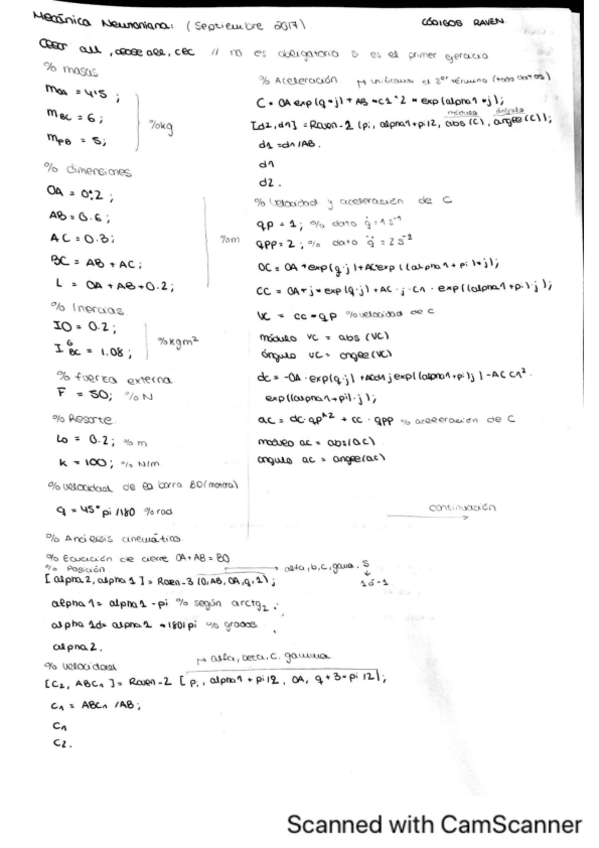 Mecánica Newtoniana: (Septiembre 2017)
CÓDIGOS RAVEN
clear all, close all, clc // no es obligatorio si es el primer ejercicio
% masas
mOA = 4'5 ;
mBC = 6 ;
mPB = 5 ;
% kg
% dimensiones
OA = 0'2 ;
AB = 0.6 ;
AC = 0.3 ;
BC = AB + AC ;
L = OA + AB + 0.2 ;
% m
% Inercias
IO = 0.2 ;
I G BC = 1.08 ;
% kgm²
% fuerza externa
F = 50 ; % N
% Resorte
Lo = 0.2 ; % m
K = 100 ; % N/m
% velocidad de la barra BO (motora)
q = 45* pi /180 % rad
% Análisis cinemático
% Ecuación de cierre OA + AB = BO
% Posición
alfa, b, c, gama, S
1 ó -1
[alpha 2, alpha 1] = Raven-3 (0, AB, OA, q, 1) ;
alpha 1 = alpha 1 - pi % según arctg2
alpha 1d = alpha 1 * 180/pi % grados
alpha 2.
% velocidad
alfa, beta, C, gamma
[C2, ABC1] = Raven-2 [pi, alpha 1 + pi/2, OA, q + 3*pi/2] ;
C1 = ABC1 / AB ;
C1
C2.
% Aceleración
unificamos el 2º término (todo datos)
C = OA exp(q*j) + AB * C1^2 * exp(alpha1*j) ;
módulo ángulo
[d2, d1] = Raven-2 (pi, alpha1 + pi/2, abs(C), angle(C)) ;
d1 = d1 / AB.
d1
d2.
% Velocidad y aceleración de C
qp = 1 ; % dato q̇ = 1 s⁻¹
qpp = 2 ; % dato q̈ = 2 s⁻²
OC = OA * exp(q·j) + AC exp((alpha1 + pi)*j) ;
CC = OA * j * exp(q·j) + AC · j · C1 · exp((alpha1 + pi)·j) ;
VC = CC * qp % velocidad de C
módulo VC = abs (VC)
ángulo VC = angle (VC)
dc = -OA · exp(q·j) + AC d1 j exp((alpha1 + pi)j) - AC C1² ·
exp((alpha1 + pi)·j) ;
aC = dc · qp^2 + CC · qpp % aceleración de C
módulo aC = abs(aC)
angulo aC = angle(aC)
continuación
Scanned with CamScanner